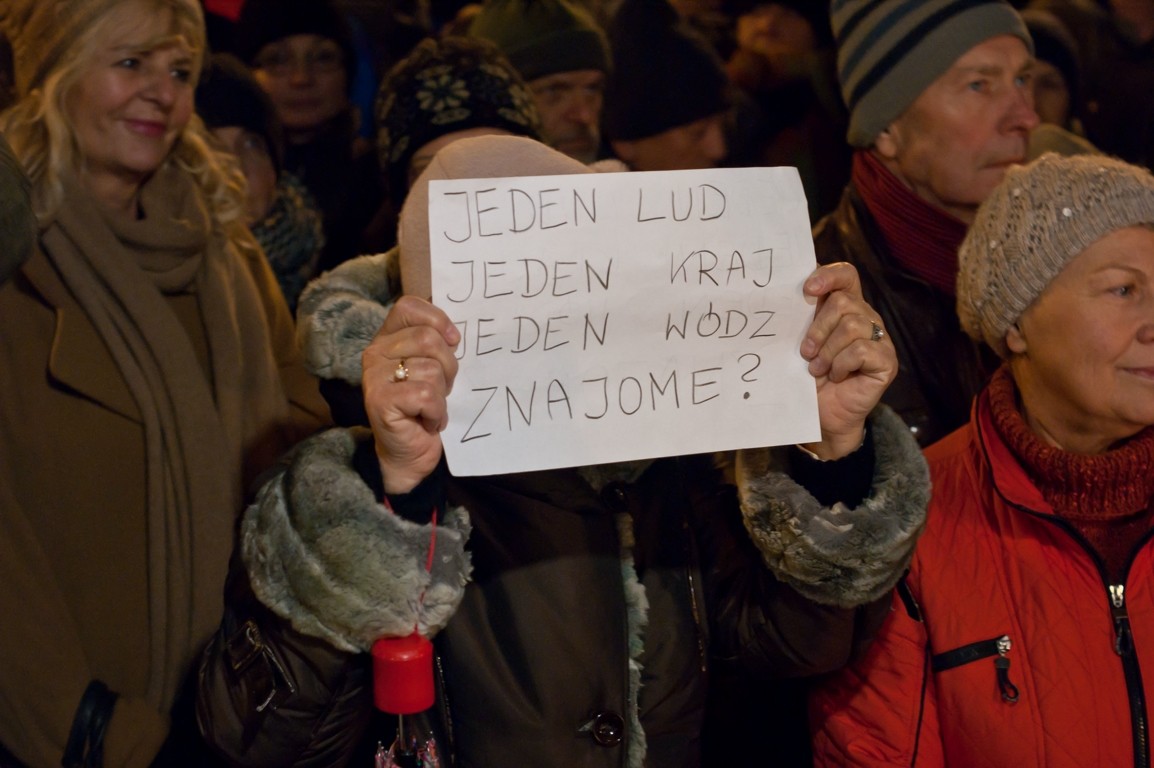 JEDEN LUD
JEDEN KRAJ
JEDEN WÓDZ
ZNAJOME?